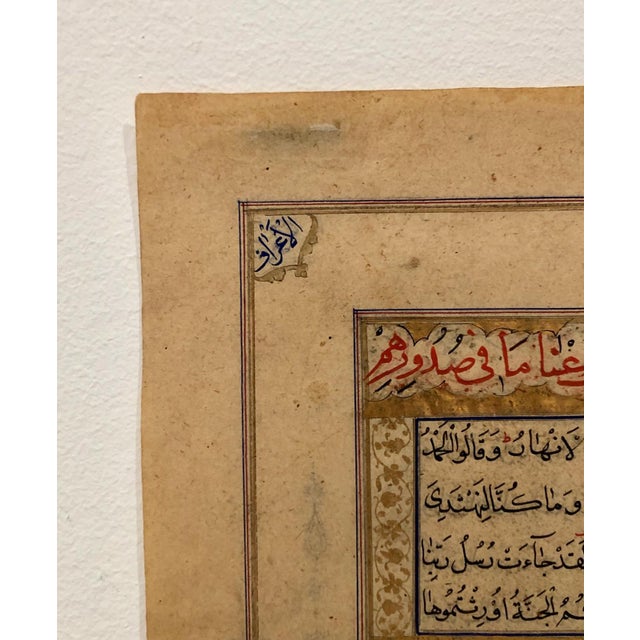 الأعراف
عنا ما فى صُدُورِهِم
لَانهَارُ ط وَقَالُوا الحَمْدُ
وَمَا كُنَّا لِنَهْتَدِىَ
لَقَدْ جَآءَتْ رُسُلُ رَبِّنَا
كُمُ الجَنَّةُ اُورِثْتُمُوهَا